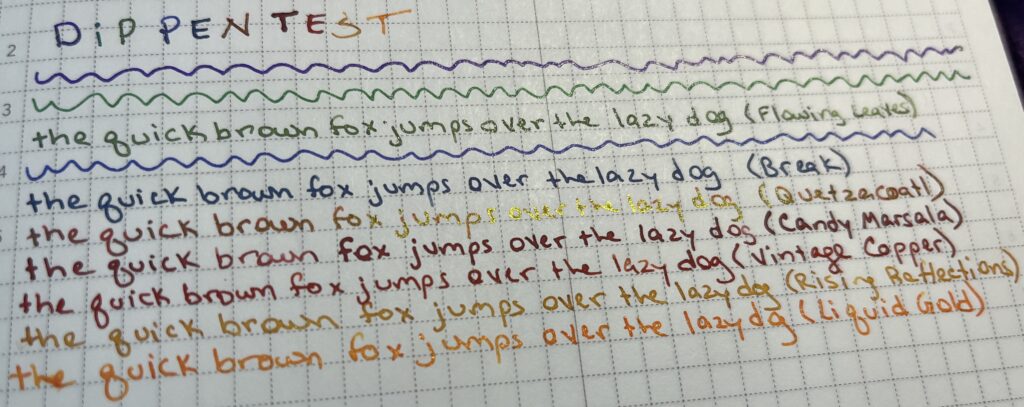 DiP PEN TEST
2
3
the quick brown fox jumps over the lazy dog (Flowing Leaves)
4
the quick brown fox jumps over the lazy dog (Break)
the quick brown fox jumps over the lazy dog (Quetzacoatl)
the quick brown fox jumps over the lazy dog (Candy Marsala)
the quick brown fox jumps over the lazy dog (Vintage Copper)
the quick brown fox jumps over the lazy dog (Rising Reflections)
the quick brown fox jumps over the lazy dog (Liquid Gold)